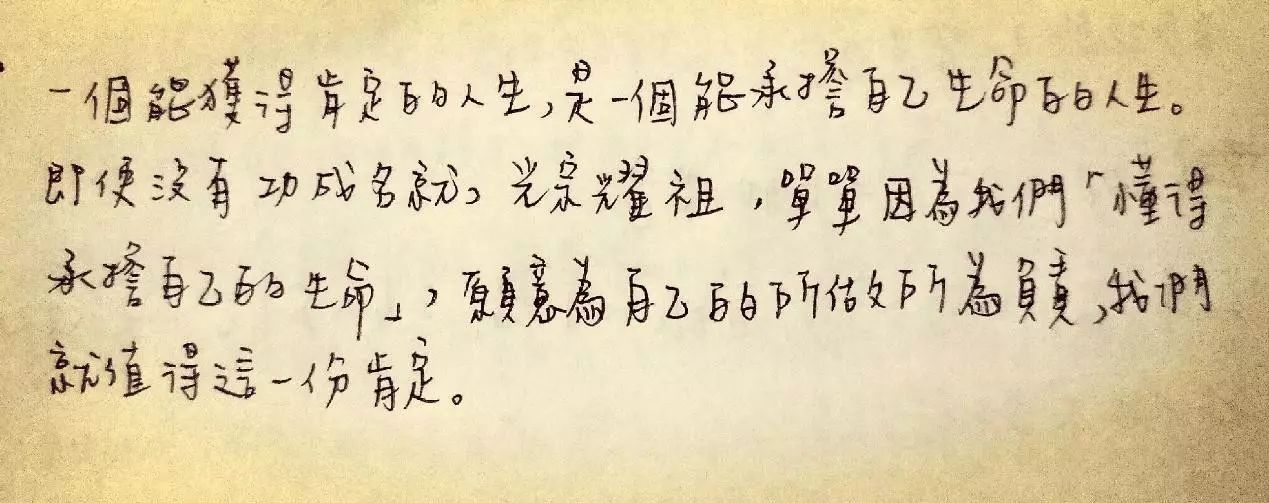 一個能獲得肯定的人生,是一個能承擔自己生命的人生。
即便沒有功成名就、光宗耀祖,單單因為我們「懂得
承擔自己的生命」,願意為自己的所做所為負責,我們
就值得這一份肯定。